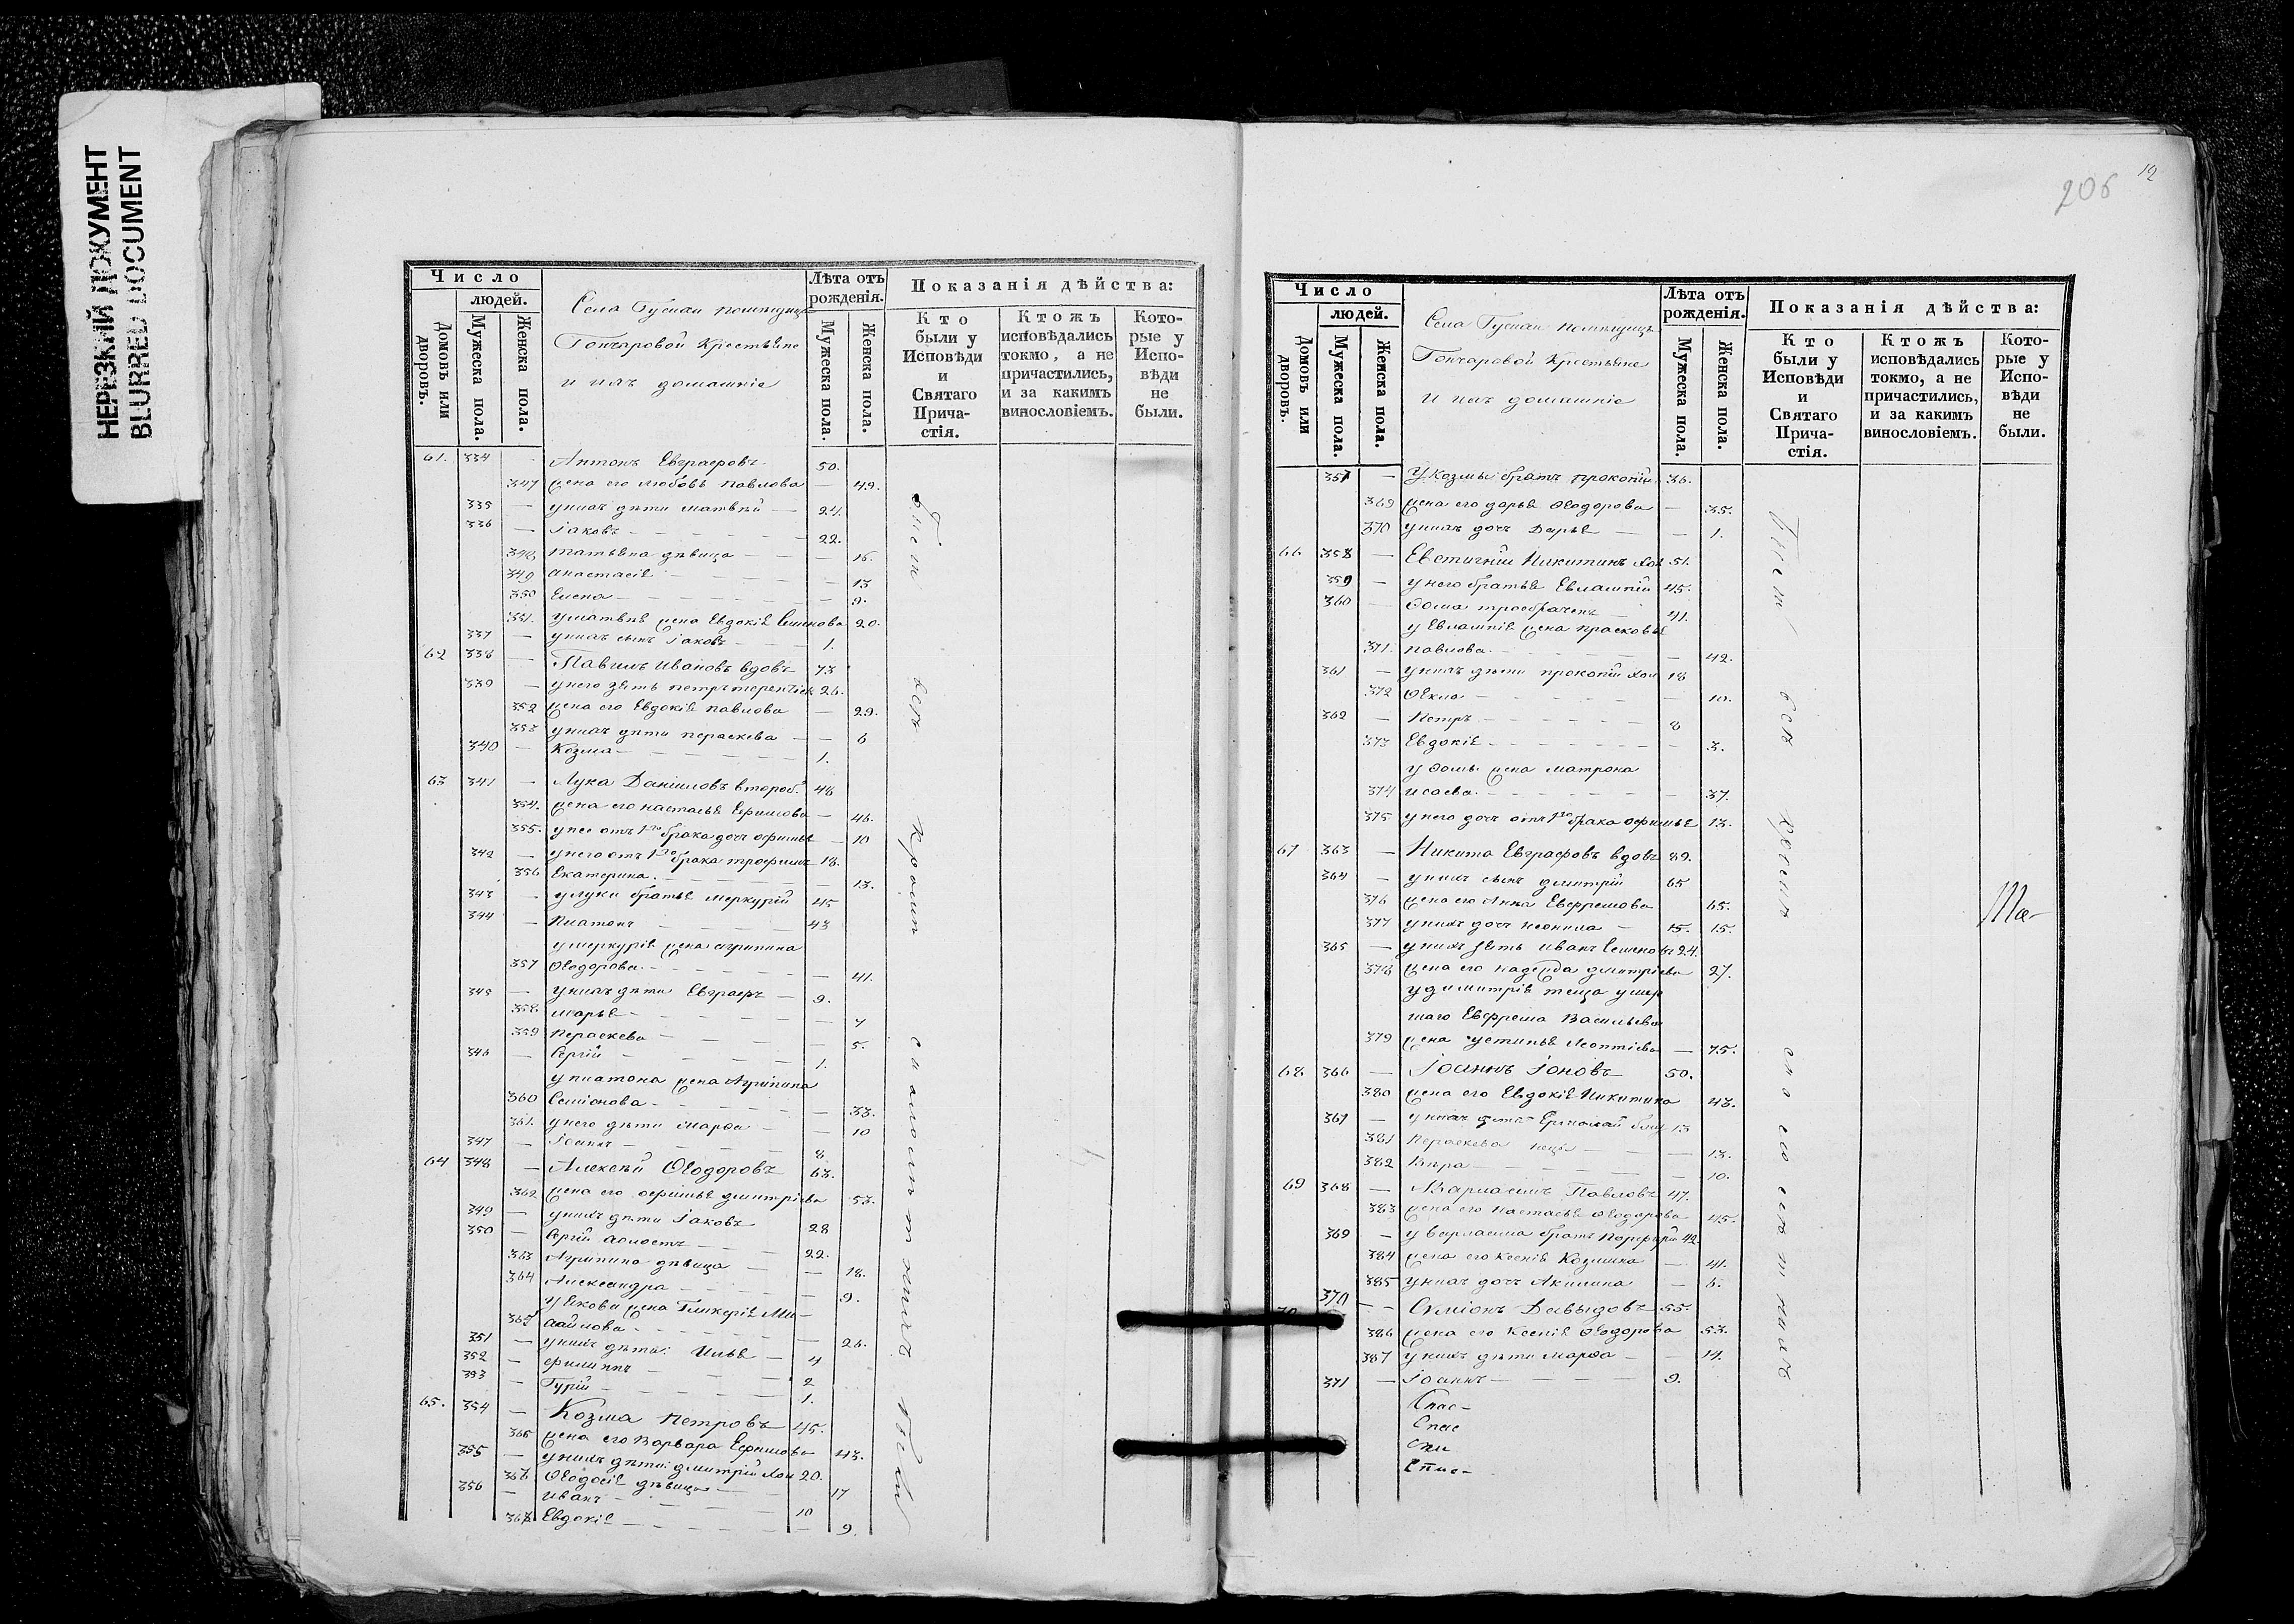 НЕРЕЗКИЙ ДОКУМЕНТ
BLURRED DOCUMENT
Число
людей.
Домовъ или дворовъ.
Мужеска пола.
Женска пола.
Села помещицы
Гончаровой Крестьяне
и ихъ домашніе
Лѣта отъ рожденія.
Мужеска пола.
Женска пола.
Показанія дѣйства:
Кто были у Исповѣди и Святаго Прича-стія.
Ктожъ исповѣдались токмо, а не причастились, и за какимъ винословіемъ.
Кото-рые у Испо-вѣди не были.
61. 334 - Антонъ Евграфовъ 50.
347 жена его любовь павлова — 49.
335 — у нихъ дѣти матвѣй — 24.
336 — Іаковъ 22.
348 татьяна дѣвица 16.
349 анастасія 13
350 Елена 9.
351. у матвѣя жена Евдокія Семенова 20.
337 — у нихъ сынъ Іаковъ 1.
62 338 — Ивановъ вдовъ 73
339 — у него зять петръ терентіевъ 26.
352 жена его Евдокія павлова — 29.
353 у нихъ дѣти параскева — 6
340 — Козма 1.
63 341 — Лука Даніиловъ второб. 48
354. жена его настасья Ефимова — 46.
355. у нее отъ 1го брака дочь офимья — 10
342 — у него отъ 1го брака трофимъ 18.
356 Екатерина. 13.
343 — у луки братья меркурій 45
344 — Платонъ 43
у меркурія жена агрипина
357 Ѳеодорова. 41.
345 — у нихъ дѣти Евграфъ — 9.
358 марья 7
359 Пераскева 5.
346 — Сергій 1.
у платона жена Агрипина
360 Семіонова 33.
361. у него дѣти марѳа 10
347 — Іоаннъ 8
64 348 — Алексѣй Ѳеодоровъ 63.
362 жена его офимья дмитріева 53.
349 — у нихъ дѣти Іаковъ 28
350 — Сергій холостъ 22.
363 Агрипина дѣвица — 18.
364 Александра 9.
у Якова жена Гликерія Ми-
365 хайлова 26.
351 — у нихъ дѣти: Илья — 4
352 — филиппъ 2
353 — Гурій 1.
65. 354 — Козма Петровъ 45.
366 жена его Варвара Ефимова 43.
355 — у нихъ дѣти: дмитрій хол 20.
367 Ѳеодосія дѣвица 17
356 — иванъ 10
368 Евдокія 9.
206
12
Число
людей.
Домовъ или дворовъ.
Мужеска пола.
Женска пола.
Села помещицы
Гончаровой Крестьяне
и ихъ домашніе
Лѣта отъ рожденія.
Мужеска пола.
Женска пола.
Показанія дѣйства:
Кто были у Исповѣди и Святаго Прича-стія.
Ктожъ исповѣдались токмо, а не причастились, и за какимъ винословіемъ.
Кото-рые у Испо-вѣди не были.
357 — У Козмы братъ прокопій 36.
369 жена его дарья Ѳеодорова — 35.
370 у нихъ дочь Дарья — 1.
66 358 — Никитинъ хол 51.
359 — у него братья Евлампій 45.
360 — Ѳома 41.
у Евлампія жена прасковья
371. павлова. 42.
361 — у нихъ дѣти прокопій хол 18
372 Ѳекла 10.
362 — Петръ 8
373 Евдокія 3.
у Ѳомы жена матрона
374 исаева. 37.
375 у него дочь отъ 1го брака офимья 13.
67 363 — Никита Евграфовъ вдовъ 89.
364 — у нихъ сынъ дмитрій 65
376 жена его Анна Ефремова 65.
377 у нихъ дочь неонила — 15. 15.
365 — у нихъ зять иванъ Семеновъ 24.
378 жена его надежда дмитріева 27.
у димитрія теща умер
шаго Ефрема Васильева
379 жена устинья Леонтіева — 75.
68 366 — Іоаннъ Іоновъ 50.
380 жена его Евдокія Никитина 43.
367 — у нихъ дѣти Ермолай 13
381 Пераскева 13.
382 Вѣра 10.
69 368 — Варлаамъ Павловъ 47.
383 жена его настасья Ѳеодорова 45.
369 — у варлаама братъ Порфирій 42.
384 жена его Ксенія Козмина — 41.
385 у нихъ дочь Акилина — 6.
70 370 — Симіонъ Давыдовъ 55.
386 жена его Ксенія Ѳеодорова 53.
387 у нихъ дѣти марѳа — 14.
371 — Іоаннъ 9.
Спас-
Спас
Спи
Спис-
Ма-